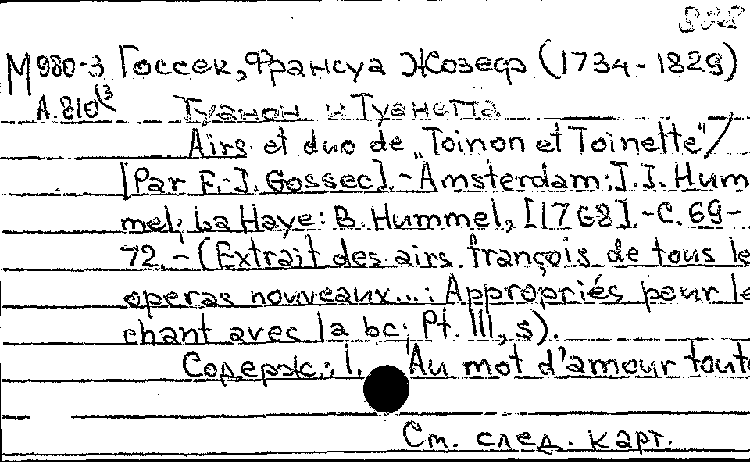 М980-3 Госсек, Франсуа Жозеф (1734-1829)
А.810(3 Туанон и Туанетта
Airs et duo de „Toinon et Toinette"/
[Par F.-J. Gossec].-Amsterdam: J.J. Hum
mel; La Haye: B. Hummel, [1768].-С. 69-
72.-(Extrait des airs françois de tous le
operas nouveaux...: Appropriés pour le
chant avec la bc; Pt. III, s).
Содерж.: 1. Au mot d'amour tout
См. след. карт.